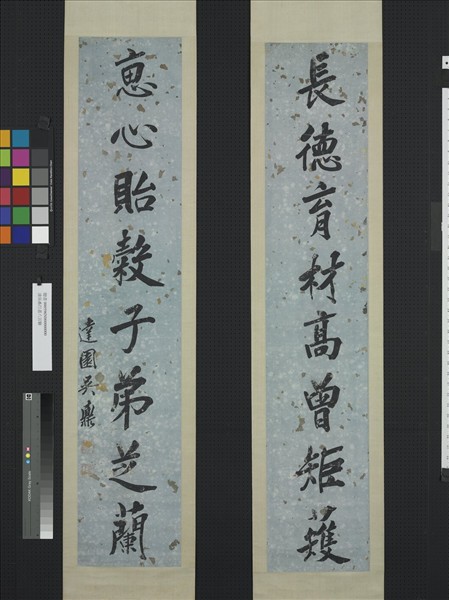 長德育材高曾矩蒦
恵心貽穀子弟芝蘭
達園吳鼒